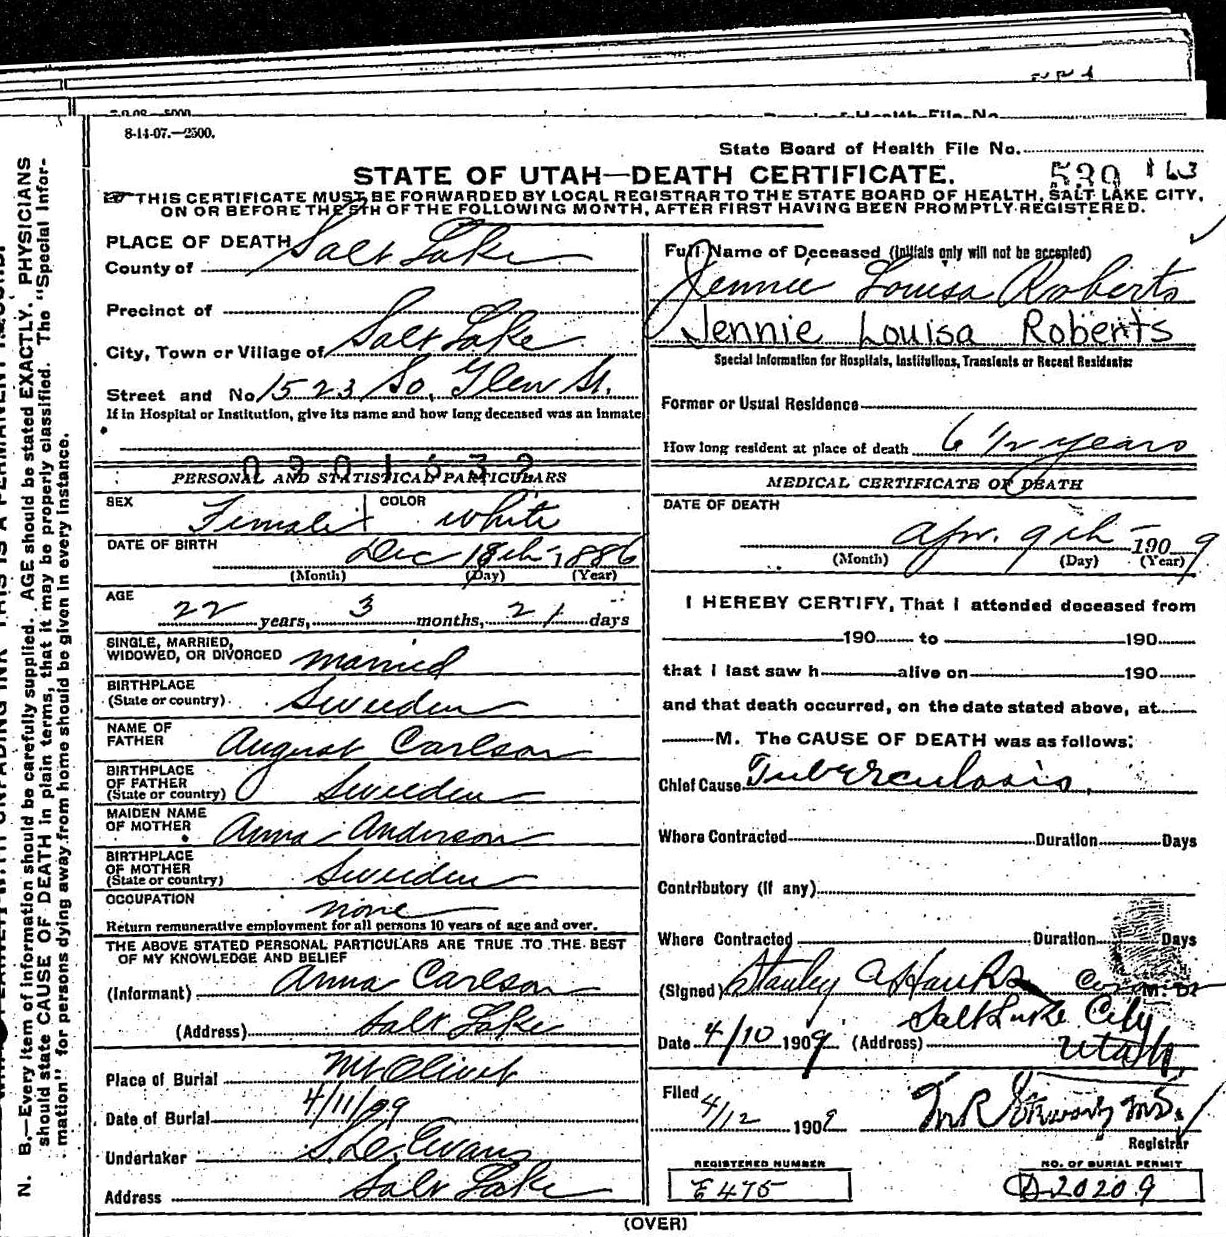 7-9-08—5000
8-14-07.—2500.
State Board of Health File No.
539 163
STATE OF UTAH—DEATH CERTIFICATE.
THIS CERTIFICATE MUST BE FORWARDED BY LOCAL REGISTRAR TO THE STATE BOARD OF HEALTH, SALT LAKE CITY,
ON OR BEFORE THE 5TH OF THE FOLLOWING MONTH, AFTER FIRST HAVING BEEN PROMPTLY REGISTERED.
PLACE OF DEATH
County of Salt Lake
Precinct of
City, Town or Village of Salt Lake
Street and No 1523 So. Glen St.
If in Hospital or Institution, give its name and how long deceased was an inmate
0201532
PERSONAL AND STATISTICAL PARTICULARS
SEX Female COLOR white
DATE OF BIRTH Dec 18th 1886
(Month) (Day) (Year)
AGE
22 years, 3 months, 21 days
SINGLE, MARRIED,
WIDOWED, OR DIVORCED married
BIRTHPLACE
(State or country) Sweeden
NAME OF
FATHER August Carlson
BIRTHPLACE
OF FATHER
(State or country) Sweeden
MAIDEN NAME
OF MOTHER Anna Anderson
BIRTHPLACE
OF MOTHER
(State or country) Sweeden
OCCUPATION none
Return remunerative employment for all persons 10 years of age and over.
THE ABOVE STATED PERSONAL PARTICULARS ARE TRUE TO THE BEST
OF MY KNOWLEDGE AND BELIEF
(Informant) Anna Carlson
(Address) Salt Lake
Place of Burial Mt Olivet
Date of Burial 4/11/09
Undertaker S. D. Evans
Address Salt Lake
Full Name of Deceased (initials only will not be accepted)
Jennie Louisa Roberts
Jennie Louisa Roberts
Special Information for Hospitals, Institutions, Transients or Recent Residents:
Former or Usual Residence
How long resident at place of death 6 1/2 years
MEDICAL CERTIFICATE OF DEATH
DATE OF DEATH
Apr. 9th 1909
(Month) (Day) (Year)
I HEREBY CERTIFY, That I attended deceased from
190 to 190
that I last saw h alive on 190
and that death occurred, on the date stated above, at
M. The CAUSE OF DEATH was as follows:
Chief Cause Tuberculosis
Where Contracted Duration Days
Contributory (if any)
Where Contracted Duration Days
(Signed) Stanley A Hanks M. D.
Salt Lake City
Date 4/10 1909. (Address) Utah
Filed 4/12 1909
Registrar
REGISTERED NUMBER
E475
NO. OF BURIAL PERMIT
D20209
(OVER)
N. B.—Every item of information should be carefully supplied. AGE should be stated EXACTLY. PHYSICIANS
should state CAUSE OF DEATH in plain terms, that it may be properly classified. The "Special Infor-
mation" for persons dying away from home should be given in every instance.